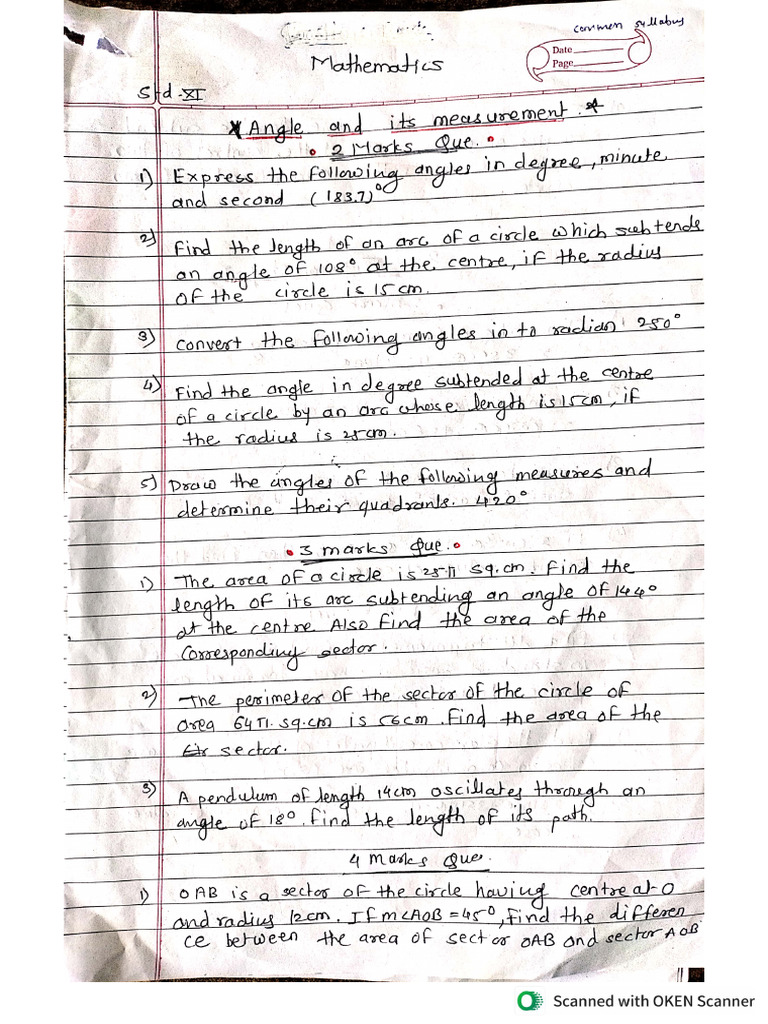 common syllabus
Date
Page
Mathematics
Std-XI
* Angle and its measurement. *
• 2 Marks Que. •
1) Express the following angles in degree, minute
and second (183.7)°
2) Find the length of an arc of a circle which subtends
an angle of 108° at the centre, if the radius
of the circle is 15 cm.
3) convert the following angles in to radian 250°
4) Find the angle in degree subtended at the centre
of a circle by an arc whose length is 15cm, if
the radius is 25cm.
5) Draw the angles of the following measures and
determine their quadrants. 420°
• 3 marks Que. •
1) The area of a circle is 25π sq.cm. Find the
length of its arc subtending an angle of 144°
at the centre Also find the area of the
corresponding sector.
2) The perimeter of the sector of the circle of
area 64π. sq.cm is 56cm. Find the area of the
sector.
3) A pendulum of length 14cm oscillates through an
angle of 18°. find the length of its path.
4 Marks Que.
1) OAB is a sector of the circle having centre at O
and radius 12cm. If m∠AOB = 45°, Find the differen
ce between the area of sector OAB and sector AOB.
Scanned with OKEN Scanner